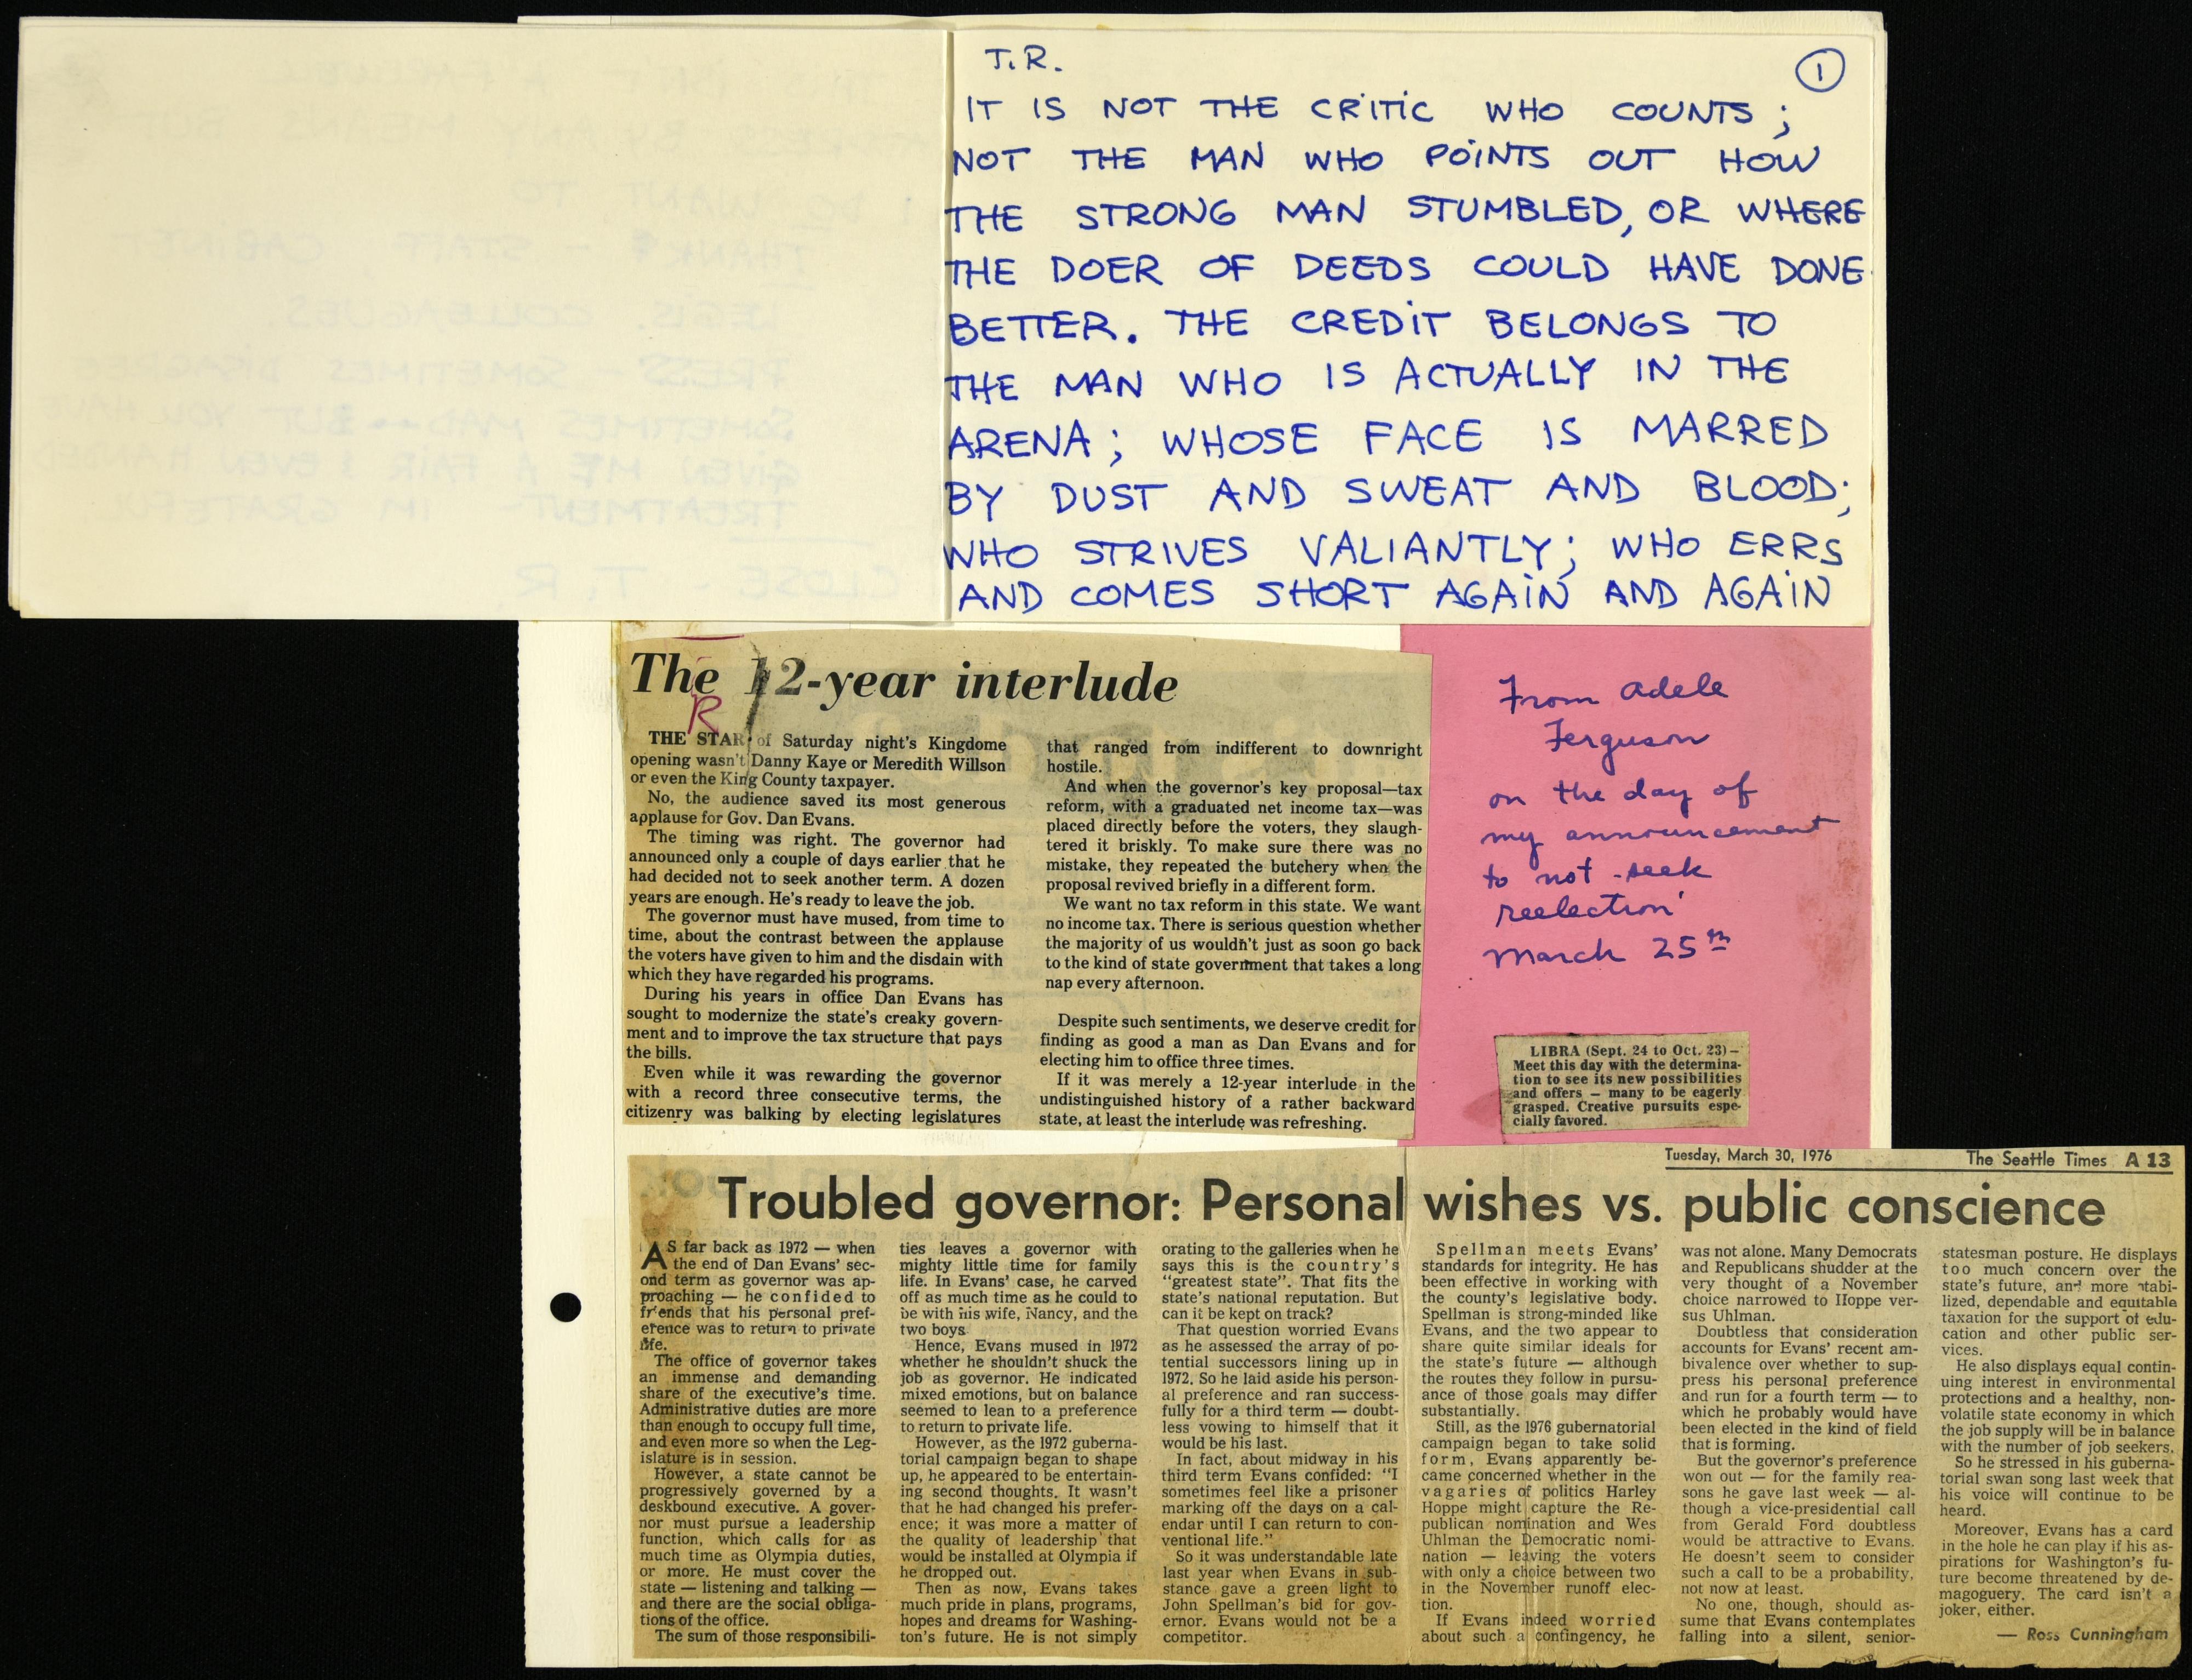 T.R.
1
IT IS NOT THE CRITIC WHO COUNTS;
NOT THE MAN WHO POINTS OUT HOW
THE STRONG MAN STUMBLED, OR WHERE
THE DOER OF DEEDS COULD HAVE DONE
BETTER. THE CREDIT BELONGS TO
THE MAN WHO IS ACTUALLY IN THE
ARENA; WHOSE FACE IS MARRED
BY DUST AND SWEAT AND BLOOD;
WHO STRIVES VALIANTLY; WHO ERRS
AND COMES SHORT AGAIN AND AGAIN
The 12-year interlude
R
THE STAR of Saturday night's Kingdome
opening wasn't Danny Kaye or Meredith Willson
or even the King County taxpayer.
No, the audience saved its most generous
applause for Gov. Dan Evans.
The timing was right. The governor had
announced only a couple of days earlier that he
had decided not to seek another term. A dozen
years are enough. He's ready to leave the job.
The governor must have mused, from time to
time, about the contrast between the applause
the voters have given to him and the disdain with
which they have regarded his programs.
During his years in office Dan Evans has
sought to modernize the state's creaky govern-
ment and to improve the tax structure that pays
the bills.
Even while it was rewarding the governor
with a record three consecutive terms, the
citizenry was balking by electing legislatures
that ranged from indifferent to downright
hostile.
And when the governor's key proposal—tax
reform, with a graduated net income tax—was
placed directly before the voters, they slaugh-
tered it briskly. To make sure there was no
mistake, they repeated the butchery when the
proposal revived briefly in a different form.
We want no tax reform in this state. We want
no income tax. There is serious question whether
the majority of us wouldn't just as soon go back
to the kind of state government that takes a long
nap every afternoon.
Despite such sentiments, we deserve credit for
finding as good a man as Dan Evans and for
electing him to office three times.
If it was merely a 12-year interlude in the
undistinguished history of a rather backward
state, at least the interlude was refreshing.
From Adele
Ferguson
on the day of
my announcement
to not seek
reelection
March 25th
LIBRA (Sept. 24 to Oct. 23)—
Meet this day with the determina-
tion to see its new possibilities
and offers — many to be eagerly
grasped. Creative pursuits espe-
cially favored.
Tuesday, March 30, 1976 The Seattle Times A 13
Troubled governor: Personal wishes vs. public conscience
AS far back as 1972 — when
the end of Dan Evans' sec-
ond term as governor was ap-
proaching — he confided to
friends that his personal pref-
erence was to return to private
life.
The office of governor takes
an immense and demanding
share of the executive's time.
Administrative duties are more
than enough to occupy full time,
and even more so when the Leg-
islature is in session.
However, a state cannot be
progressively governed by a
deskbound executive. A gover-
nor must pursue a leadership
function, which calls for as
much time as Olympia duties,
or more. He must cover the
state — listening and talking —
and there are the social obliga-
tions of the office.
The sum of those responsibili-
ties leaves a governor with
mighty little time for family
life. In Evans' case, he carved
off as much time as he could to
be with his wife, Nancy, and the
two boys.
Hence, Evans mused in 1972
whether he shouldn't shuck the
job as governor. He indicated
mixed emotions, but on balance
seemed to lean to a preference
to return to private life.
However, as the 1972 guberna-
torial campaign began to shape
up, he appeared to be entertain-
ing second thoughts. It wasn't
that he had changed his prefer-
ence; it was more a matter of
the quality of leadership that
would be installed at Olympia if
he dropped out.
Then as now, Evans takes
much pride in plans, programs,
hopes and dreams for Washing-
ton's future. He is not simply
orating to the galleries when he
says this is the country's
"greatest state". That fits the
state's national reputation. But
can it be kept on track?
That question worried Evans
as he assessed the array of po-
tential successors lining up in
1972. So he laid aside his person-
al preference and ran success-
fully for a third term — doubt-
less vowing to himself that it
would be his last.
In fact, about midway in his
third term Evans confided: "I
sometimes feel like a prisoner
marking off the days on a cal-
endar until I can return to con-
ventional life."
So it was understandable late
last year when Evans in sub-
stance gave a green light to
John Spellman's bid for gov-
ernor. Evans would not be a
competitor.
Spellman meets Evans'
standards for integrity. He has
been effective in working with
the county's legislative body.
Spellman is strong-minded like
Evans, and the two appear to
share quite similar ideals for
the state's future — although
the routes they follow in pursu-
ance of those goals may differ
substantially.
Still, as the 1976 gubernatorial
campaign began to take solid
form, Evans apparently be-
came concerned whether in the
vagaries of politics Harley
Hoppe might capture the Re-
publican nomination and Wes
Uhlman the Democratic nomi-
nation — leaving the voters
with only a choice between two
in the November runoff elec-
tion.
If Evans indeed worried
about such a contingency, he
was not alone. Many Democrats
and Republicans shudder at the
very thought of a November
choice narrowed to Hoppe ver-
sus Uhlman.
Doubtless that consideration
accounts for Evans' recent am-
bivalence over whether to sup-
press his personal preference
and run for a fourth term — to
which he probably would have
been elected in the kind of field
that is forming.
But the governor's preference
won out — for the family rea-
sons he gave last week — al-
though a vice-presidential call
from Gerald Ford doubtless
would be attractive to Evans.
He doesn't seem to consider
such a call to be a probability,
not now at least.
No one, though, should as-
sume that Evans contemplates
falling into a silent, senior-
statesman posture. He displays
too much concern over the
state's future, and more stabi-
lized, dependable and equitable
taxation for the support of edu-
cation and other public ser-
vices.
He also displays equal contin-
uing interest in environmental
protections and a healthy, non-
volatile state economy in which
the job supply will be in balance
with the number of job seekers.
So he stressed in his guberna-
torial swan song last week that
his voice will continue to be
heard.
Moreover, Evans has a card
in the hole he can play if his as-
pirations for Washington's fu-
ture become threatened by de-
magoguery. The card isn't a
joker, either.
— Ross Cunningham